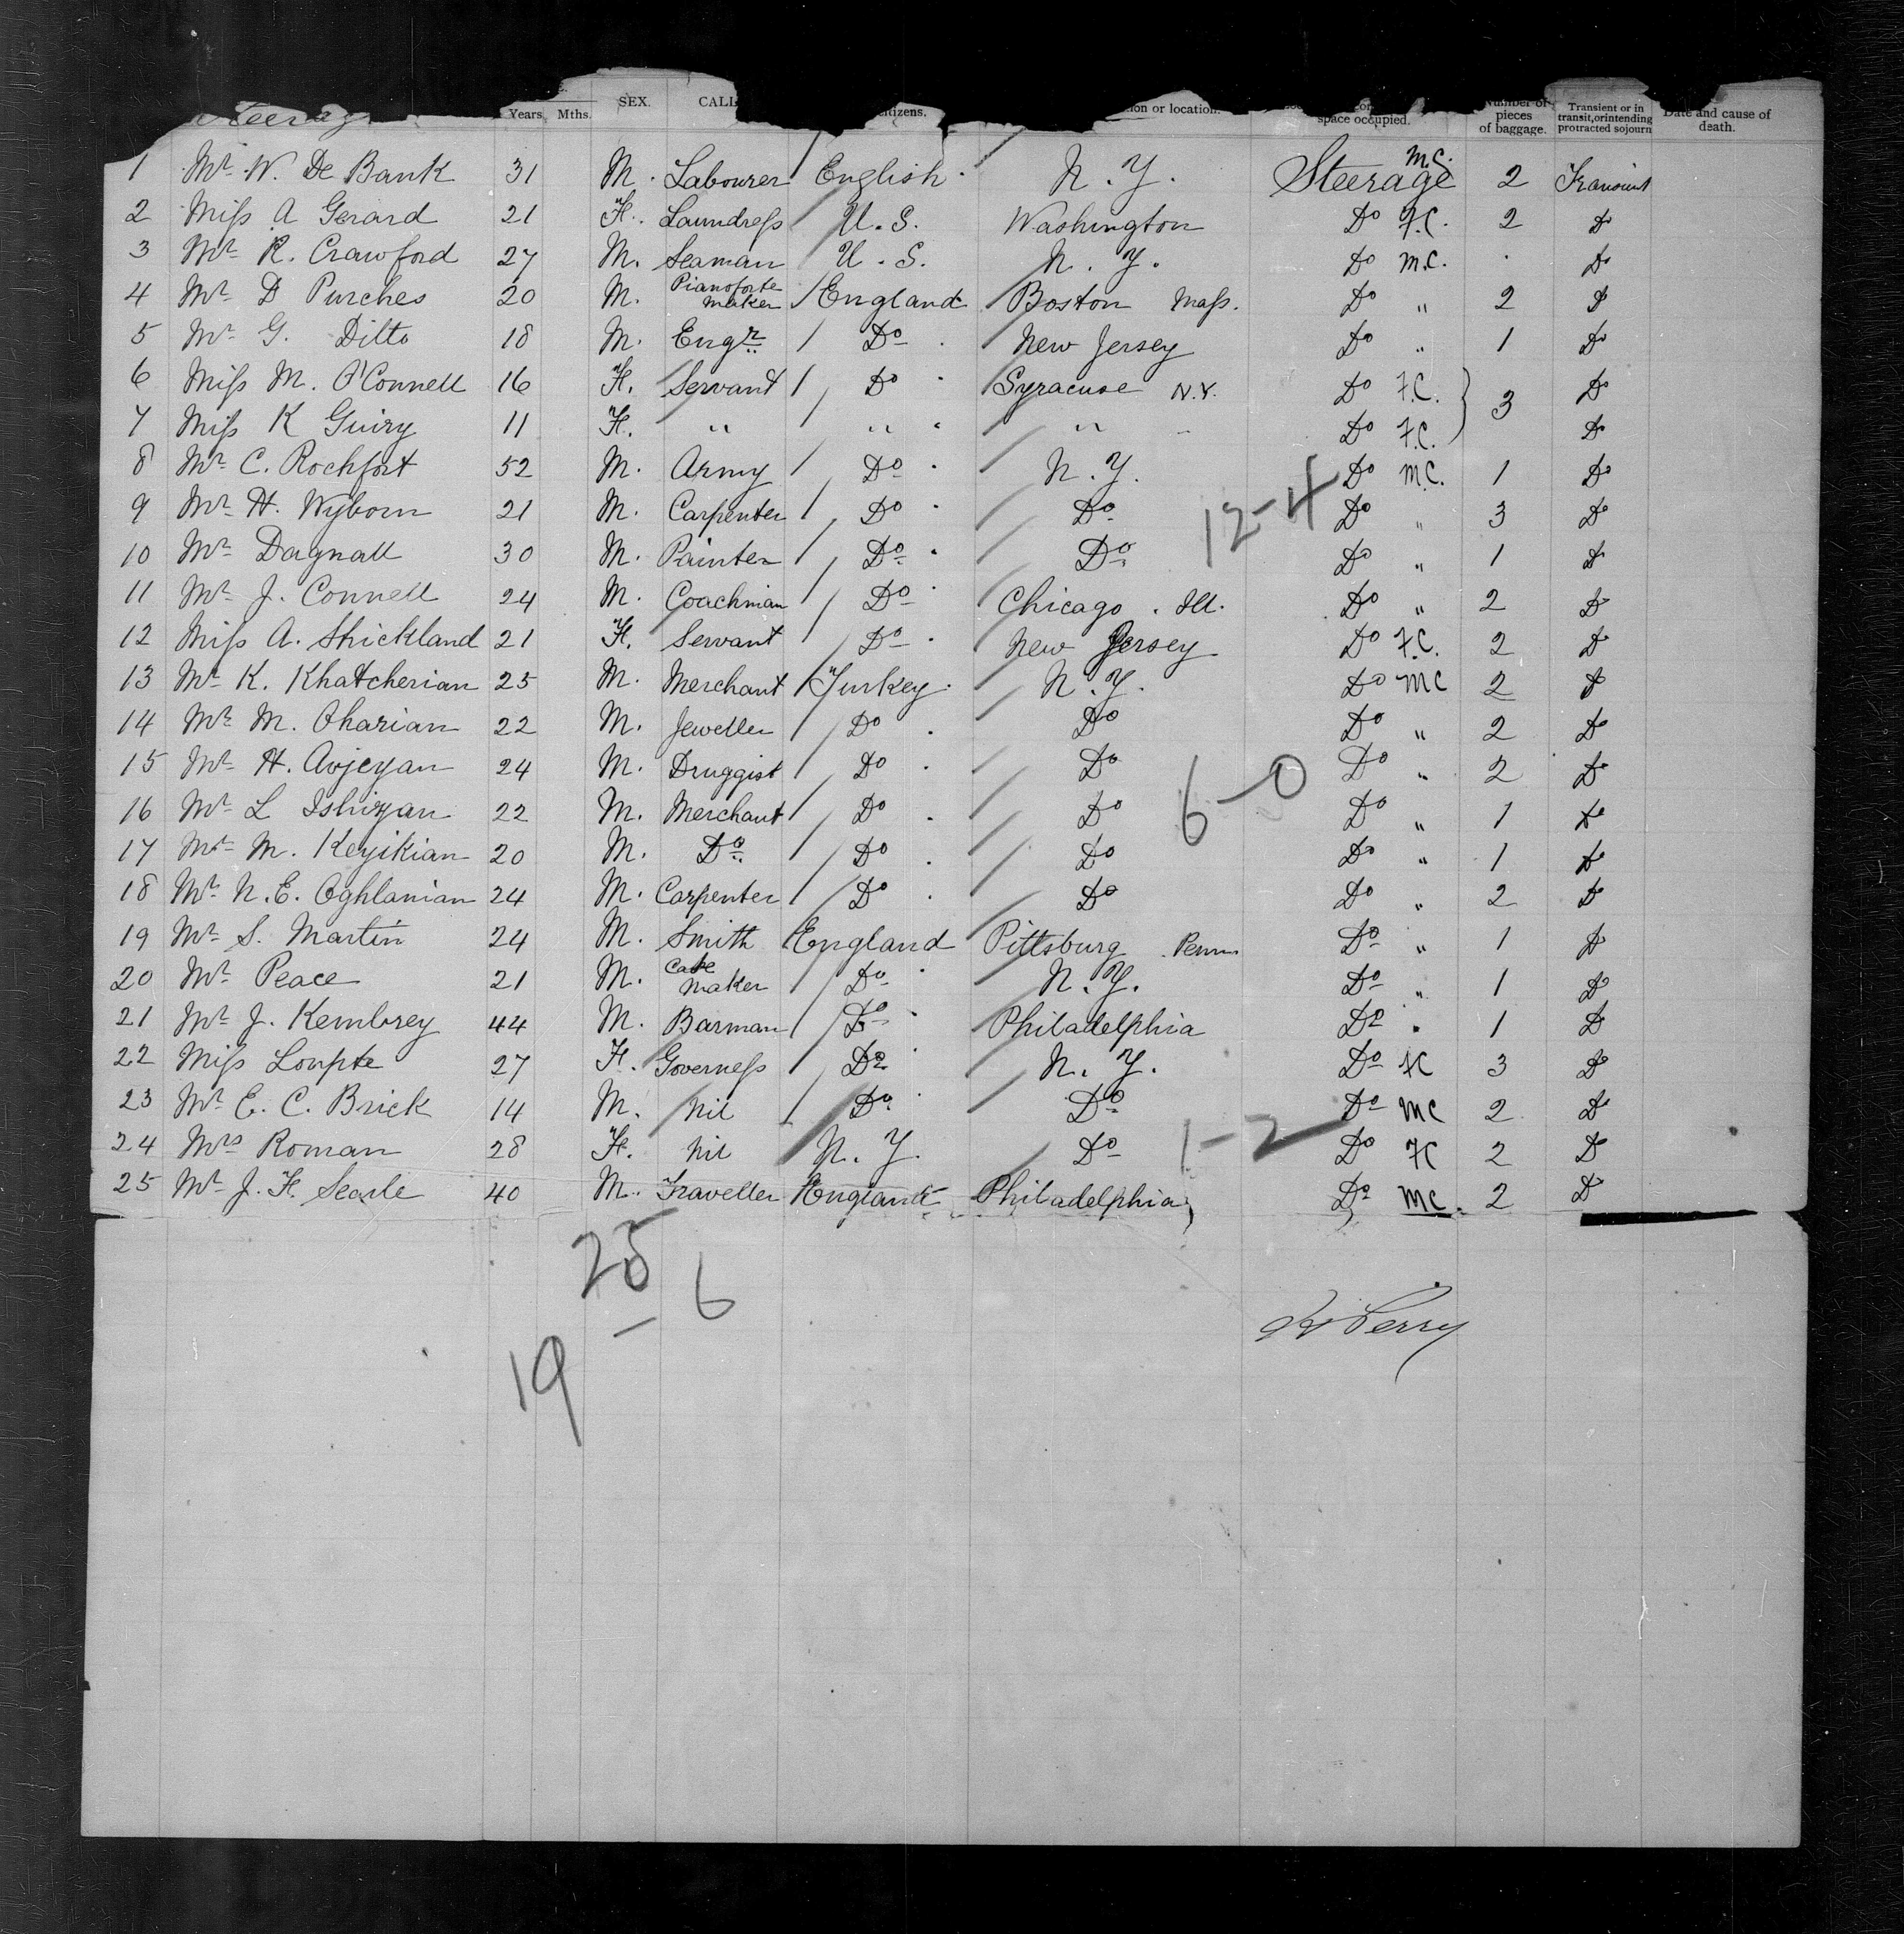 Steerag
Years Mths. SEX. CALL citizens. ion or location. space occupied. Number of pieces of baggage. Transient or in transit, or intending protracted sojourn Date and cause of death.
1 Mr. W. De Bank 31 M. Labourer English N. Y. Steerage M.C. 2 Transient
2 Miss A Gerard 21 F. Laundress U. S. Washington Do F.C. 2 Do
3 Mr R. Crawford 27 M. Seaman U. S. N. Y. Do M.C. Do
4 Mr D Purches 20 M. Pianoforte maker England Boston Mass. Do " 2 Do
5 Mr G. Ditto 18 M. Engr Do New Jersey Do " 1 Do
6 Miss M. O'Connell 16 F. Servant Do Syracuse N.Y. Do F.C. 3 Do
7 Miss K Guiry 11 F. " " " Do F.C. Do
8 Mr C. Rochfort 52 M. Army Do N. Y. Do M.C. 1 Do
9 Mr H. Wyborn 21 M. Carpenter Do Do 12-4 Do " 3 Do
10 Mr Dagnall 30 M. Painter Do Do Do " 1 Do
11 Mr J. Connell 24 M. Coachman Do Chicago. Ill. Do " 2 Do
12 Miss A. Shickland 21 F. Servant Do New Jersey Do F.C. 2 Do
13 Mr K. Khatcherian 25 M. Merchant Turkey N. Y. Do MC 2 Do
14 Mr M. Oharian 22 M. Jeweller Do Do Do " 2 Do
15 Mr H. Avjeyan 24 M. Druggist Do Do Do " 2 Do
16 Mr L 22 M. Merchant Do Do 6-0 Do " 1 Do
17 Mr M. Keyikian 20 M. Do Do Do Do " 1 Do
18 Mr N. E. Oghlanian 24 M. Carpenter Do Do Do " 2 Do
19 Mr S. Martin 24 M. Smith England Pittsburg Penn Do " 1 Do
20 Mr Peace 21 M. maker Do N. Y. Do " 1 Do
21 Mr J. Kembrey 44 M. Barman Do Philadelphia Do " 1 Do
22 Miss Loupte 27 F. Governess Do N. Y. Do FC 3 Do
23 Mr E. C. Brick 14 M. Nil Do Do Do MC 2 Do
24 Mrs Roman 28 F. Nil N. Y. Do 1-2 Do FC 2 Do
25 Mr J. F. Searle 40 M. Traveller England Philadelphia Do MC. 2 Do
25
19 - 6
Perry